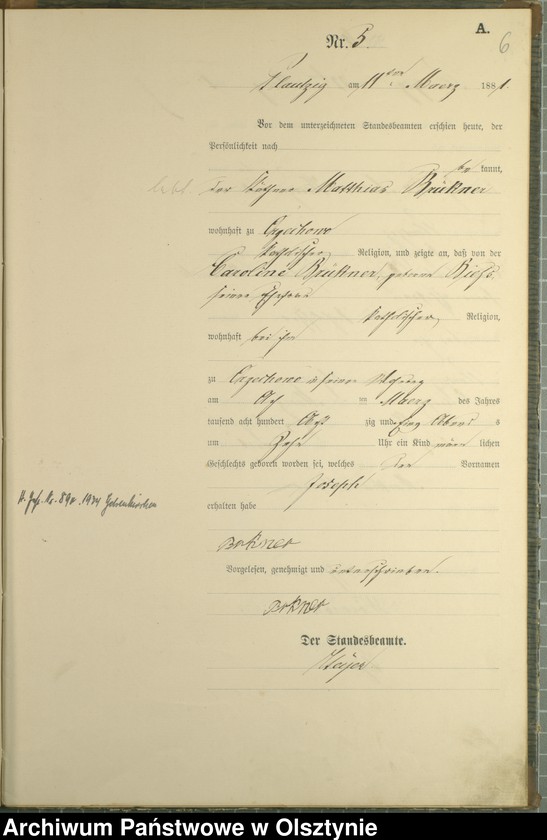 A.
6
Nr. 5
Plautzig am 11ten Maerz 1881
Vor dem unterzeichneten Standesbeamten erschien heute, der
Persönlichkeit nach
be kannt,
der Käthner Matthias Brükner
wohnhaft zu
katholischer Religion, und zeigte an, daß von der
Caroline Brükner, geborne
seiner Ehefrau
katholischer Religion,
wohnhaft bei ihm
zu in seiner Wohnung
am Acht ten Maerz des Jahres
tausend acht hundert Acht zig und Eins Abends
um Zehn Uhr ein Kind männ lichen
Geschlechts geboren worden sei, welches den Vornamen
Joseph
erhalten habe
H. Nr. 890. 1934 Gelsenkirchen
Vorgelesen, genehmigt und unterschrieben.
Der Standesbeamte.
Archiwum Państwowe w Olsztynie